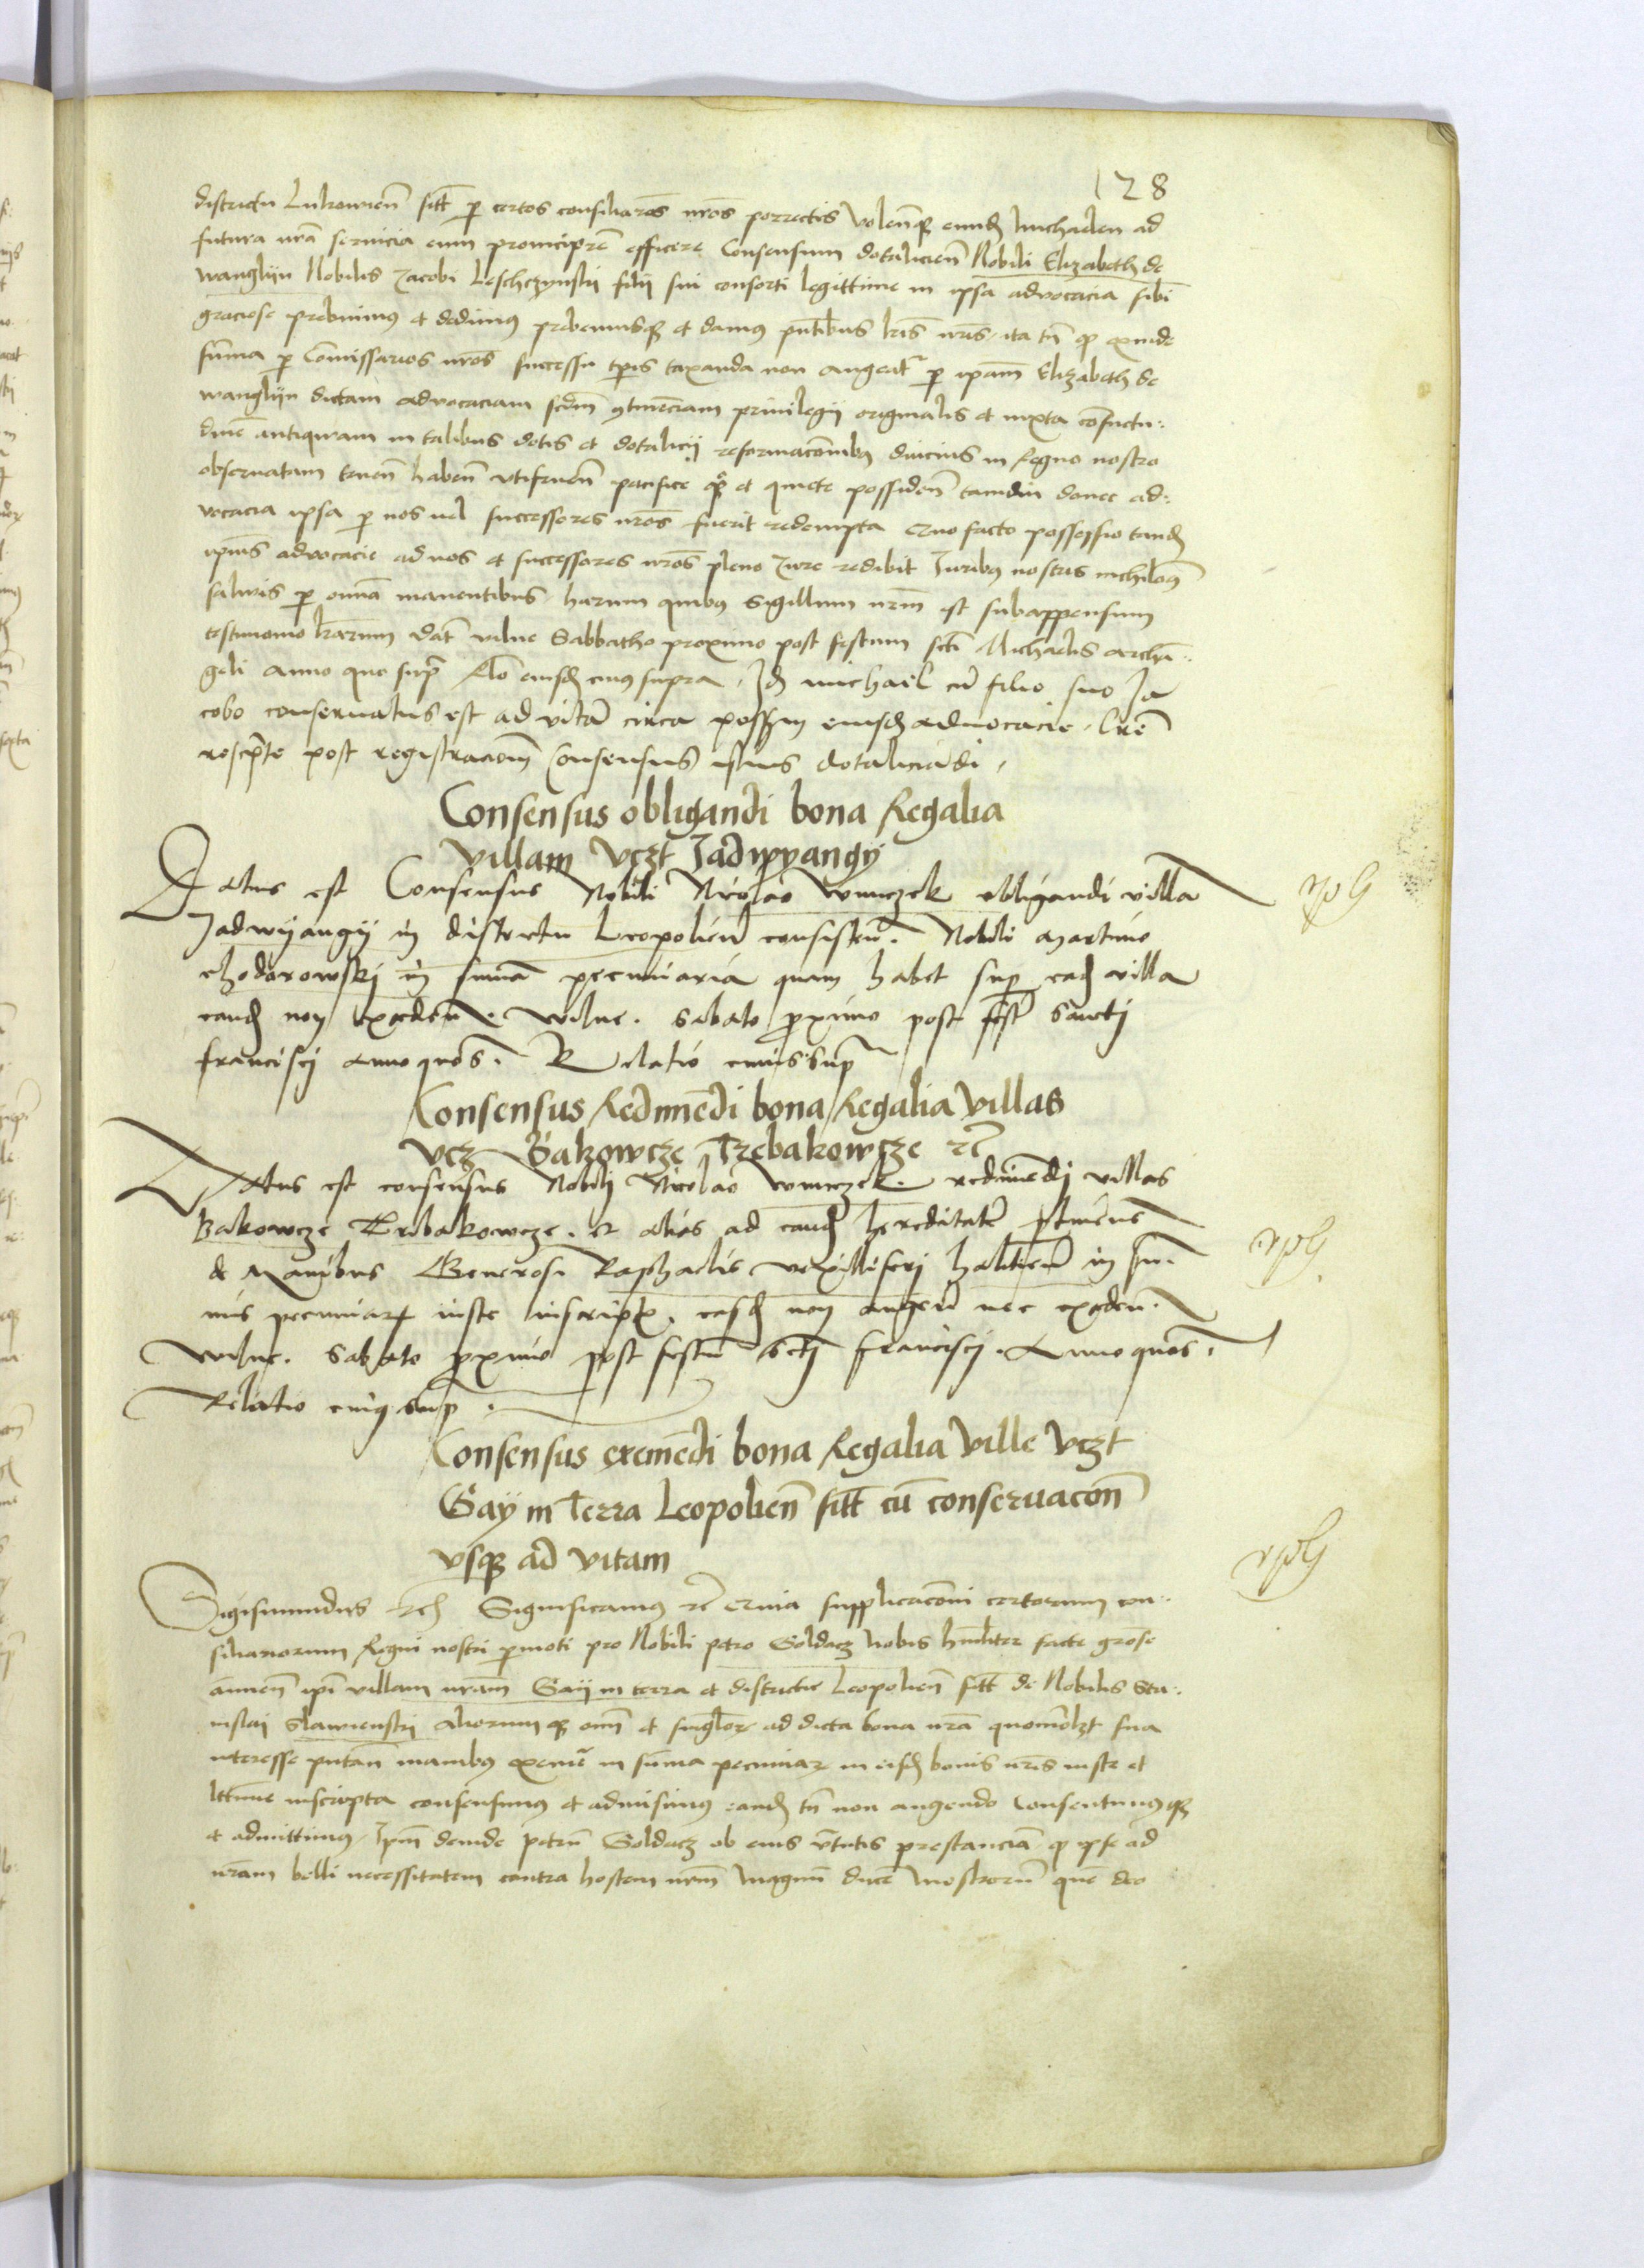 128
districtu Lukowien̄ sitt̄ p̄ certos consiliarōs nrōs porrectis Volen̄q3 eund̄ Michaelen ad
futura nrā seruicia eum promcipr̄e efficere Consensum dotalicien̄ Nobili Elizabeth de
wanglyn Nobilis Jacobi Leschczynskij filij sui consorti legittime in ipsa advocacia sibi
graciose prebuimus et dedimus prebemusq3 et damus pn̄tibus lr̄is nr̄is, ita tn̄ q3 exinde
sum̄a p̄ Com̄issarios nrōs successu tp̄is taxanda non augeat̄ p̄ ip̄am Elizabeth de
wanglyn dictam advocaciam scdm̄ 9tinenciam priuilegij originalis et iuxta cōsuetu:
dine antiquam in talibus dotis et dotalicij reformacōnibus diucius in Regno nostro
obseruatam tenen̄ haben̄ vtifruen̄ pacifice q3 et quiete possiden̄ tamdiu donec ad:
vocacia ipsa p̄ nos uel successores nrōs fuerit redempta Quo facto possessio tand̄
ip̄ius advocacie ad nos et successores nrōs pleno Jure redibit Juribus nostris nichilo9
saluis p̄ omn̄ia manentibus harum quibus Sigillum nrm̄ est subappensum
testimonio lrārum Dat̄ vilne Sabbatho proximo post festum scti Michaelis archā:
geli Anno quo supra Rlō eiusd̄ cuius supra, Jd̄ michael cū filio suo Ja
cobo conseruatus est ad vitā circa poss̄m eiusd̄ advocacie. lrē
rescp̄te post registracionē Consensus istius dotaliciādi,
Consensus obligandi bona Regalia
villam vczt Jadwyangij
Datus est Consensus Nobili Nicolao wunczek obligandi villā
Jadwyangij in districtu Leopolien̄ consisten̄. Nobili Martino
chodorowskj in sum̄a pecuniaria quam habet sup̄ ead̄ villa
eand̄ non exceden̄. wilne. Sabato proximo post fest̄ Sanctj
franciscj anno quo s. Relatio cuius sup̄
Consensus Redimēdi bona Regalia villas
vcz Bakowcze Trzebakowcze rc̄
Datus est consensus Nobilj Nicolao wunczek. redimēdj villas
Bakowcze Tribakowcze. et alias ad eand̄ hereditatē p̄tinēns
de Manibus Generosi Raphaelis vexilliferj halicien̄ in sum̄:
mis pecuniar̄ iuste inscriptis. easd̄ non augen̄ nec exceden̄.
wilne. Sabato proximo post festū sctj franciscj. Anno quo s.
Relatio cuius sup̄.
Consensus eximēdi bona Regalia ville vczt
Gay in Terra Leopolien̄ sitt̄ cū conseruacōn̄
vsq3 ad vitam
Sigismundus rc̄ Significamus rc̄ Quia supplicacōni certorum con:
siliariorum Regni nostri p̄moti pro Nobili petro Goldacz Nobis hum̄liter facte grōse
annuen̄ ip̄i villam nrām Gay in terra et districtu Leopolien̄ sitt̄ de Nobilis Sta:
nislai Slawienskj Aliorumq3 om̄n et singlōr̄ ad dicta bona nrā quomōlzt sua
interesse putan̄ manibus eximē in sum̄a pecuniar̄ in eisd̄ bonis nrīs iuste et
lttīme inscripta consensimus et admisimus eand̄ tn̄ non augendo Consentimusq3
et admittimus. Jpm̄ deinde petrū Goldacz ob eius v̄tutis prestanciā q3 ipse ad
nrām belli necessitatem contra hostem nrm̄ Magnū ducē Moskorū quē deo